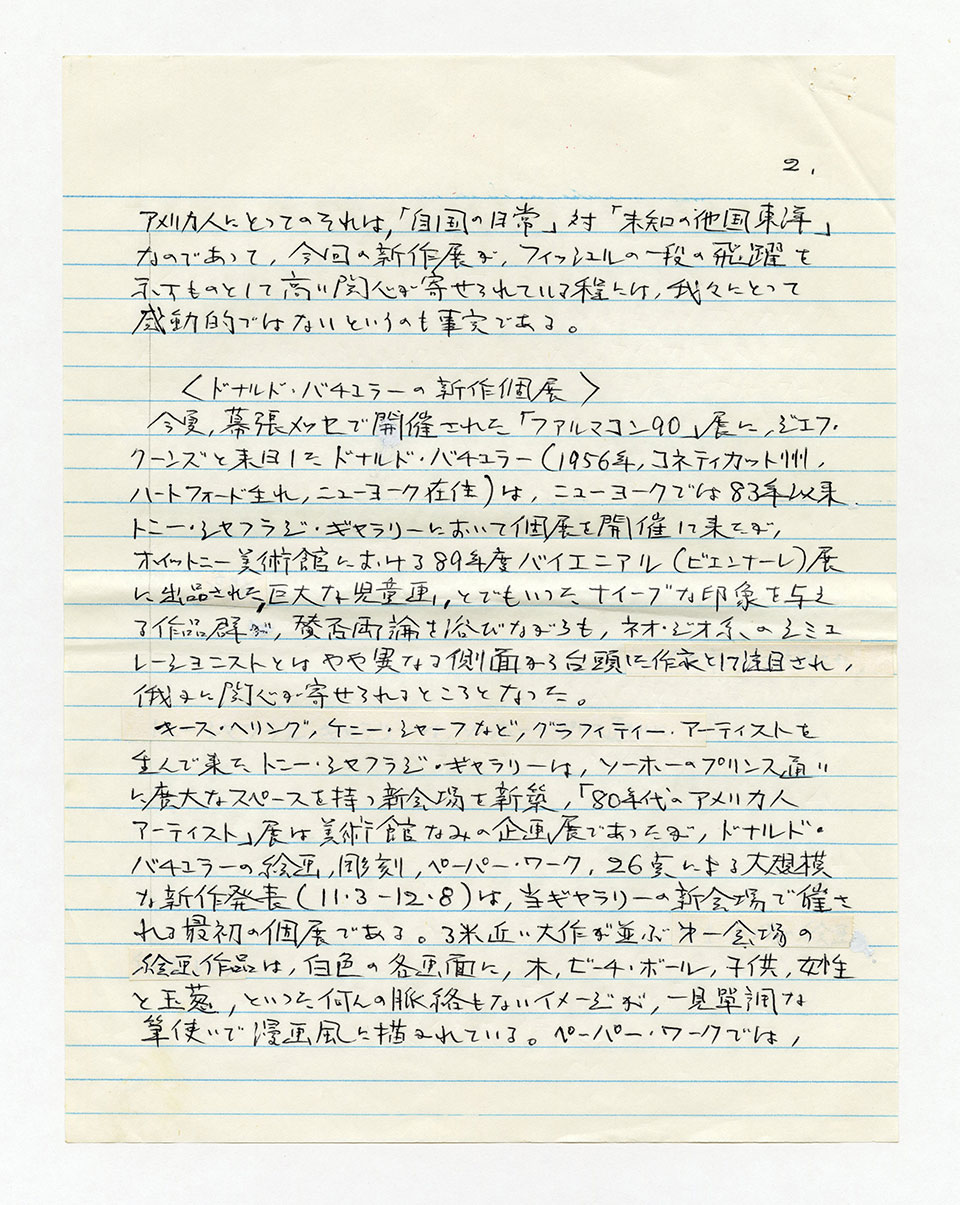 2.
アメリカ人にとってのそれは,「自国の日常」対「未知の他国東洋」
なのであって, 今回の新作展が, フィッシュルの一段の飛躍を
示すものとして高い関心が寄せられている程には, 我々にとって
感動的ではないというのも事実である。
〈ドナルド・バチェラーの新作個展〉
今夏, 幕張メッセで開催された「ファルマコン90」展に, ジェフ・
クーンズと来日したドナルド・バチェラー(1956年, コネティカット州,
ハートフォード生れ, ニューヨーク在住)は, ニューヨークでは83年以来
トニー・シャフラジ・ギャラリーにおいて個展を開催して来たが,
ホイットニー美術館における89年度バイエニアル(ビエンナーレ)展
に出品された,巨大な児童画,とでもいったナイーブな印象を与え
る作品群が, 賛否両論を浴びながらも, ネオ・ジオ系のシミュ
レーショニストとはやや異なる側面から台頭した作家として注目され,
俄かに関心が寄せられるところとなった。
キース・ヘリング, ケニー・シャーフなど, グラフィティー・アーティストを
生んで来たトニー・シャフラジ・ギャラリーは, ソーホーのプリンス通り
に広大なスペースを持つ新会場を新築,「80年代のアメリカ人
アーティスト」展は美術館なみの企画展であったが, ドナルド・
バチェラーの絵画, 彫刻, ペーパー・ワーク, 26点による大規模
な新作発表(11・3-12・8)は, 当ギャラリーの新会場で催さ
れる最初の個展である。3米近い大作が並ぶ第一会場の
絵画作品は, 白色の各画面に, 木, ビーチ・ボール, 子供, 女性
と玉葱, といった何んの脈絡もないイメージが, 一見単調な
筆使いで漫画風に描かれている。ペーパー・ワークでは,